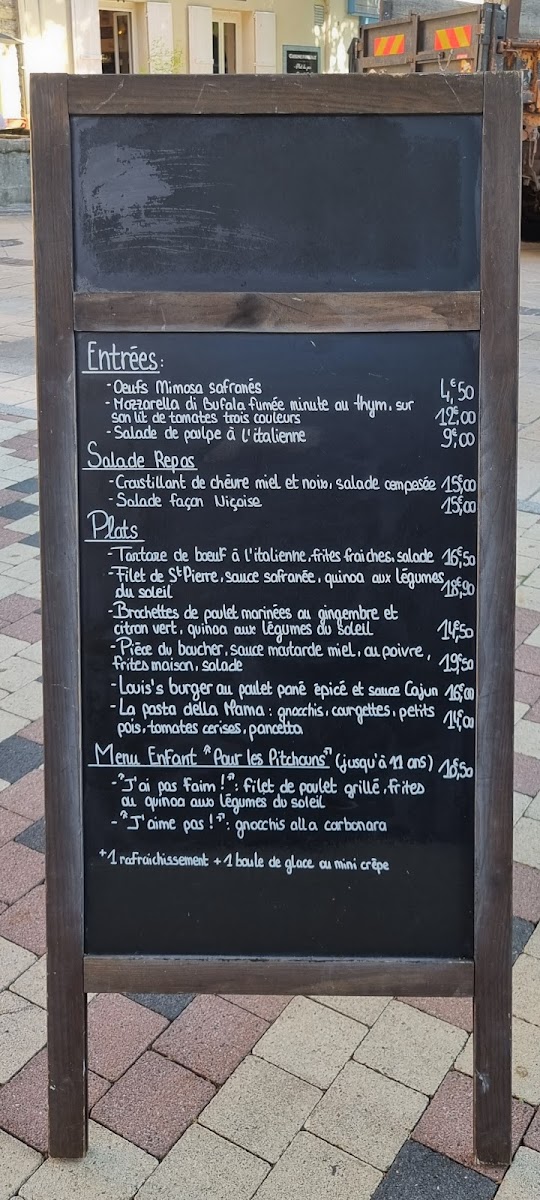 Entrées:
- Oeufs Mimosa safranés 4,€50
- Mozzarella di Bufala fumée minute au thym, sur
son lit de tomates trois couleurs 12,€00
- Salade de poulpe à l'italienne 9,€00
Salade Repas
- Croustillant de chèvre miel et noix, salade composée 15,€00
- Salade façon Niçoise 15,€00
Plats
- Tartare de bœuf à l'italienne, frites fraiches, salade 16,€50
- Filet de St Pierre, sauce safranée, quinoa aux légumes
du soleil 18,€90
- Brochettes de poulet marinées au gingembre et
citron vert, quinoa aux légumes du soleil 14,€50
- Pièce du boucher, sauce moutarde miel, au poivre,
frites maison, salade 19,€50
- Louis's burger au poulet pané épicé et sauce Cajun 16,€00
- La pasta della Mama : gnocchis, courgettes, petits
pois, tomates cerises, pancetta 14,€00
Menu Enfant "Pour les Pitchouns" (jusqu'à 11 ans) 10,€50
- "J'ai pas faim !" : filet de poulet grillé, frites
ou quinoa aux légumes du soleil
- "J'aime pas !" : gnocchis alla carbonara
+ 1 rafraichissement + 1 boule de glace ou mini crêpe